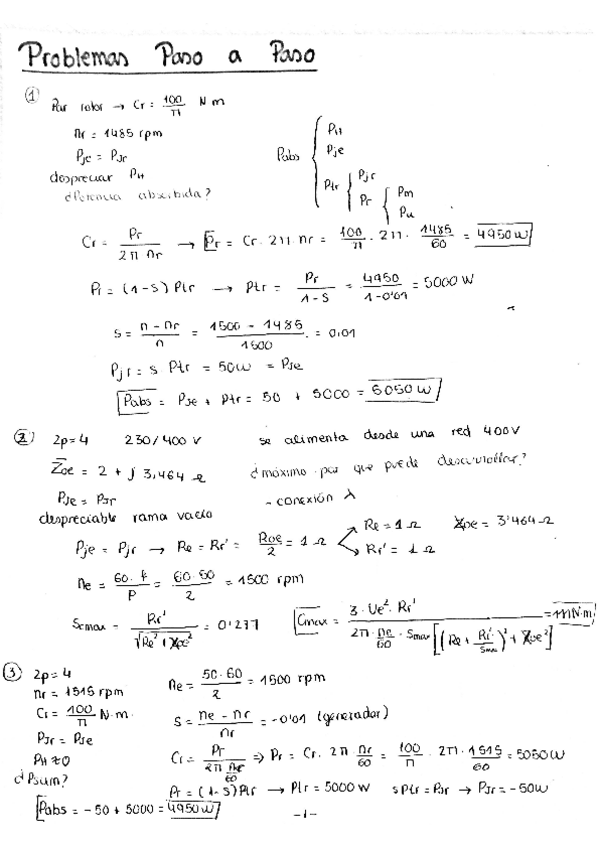 Problemas Paso a Paso
① Par rotor → Cr = 100/π N m
nr = 1485 rpm
Pje = Pjr
despreciar PH
¿Potencia absorbida?
Pabs { PH
Pje
Ptr { Pjr
Pr { Pm
Pu
Cr = Pr / 2π nr → Pr = Cr · 2π nr = 100/π · 2π · 1485/60 = 4950 W
Pr = (1-S) Ptr → Ptr = Pr / 1-S = 4950 / 1-0'01 = 5000 W
S = n - nr / n = 1500 - 1485 / 1500 = 0,01
Pjr = s Ptr = 50W = Pje
Pabs = Pje + Ptr = 50 + 5000 = 5050 W
② 2p = 4 230/400 V se alimenta desde una red 400V
Zoe = 2 + j 3,464 Ω ¿máximo par que puede desarrollar?
Pje = Pjr - conexión λ
despreciable rama vacío
Pje = Pjr → Re = Rr' = Roe/2 = 1 Ω Re = 1 Ω Xoe = 3'464 Ω
Rr' = 1 Ω
ne = 60·f / P = 60·50 / 2 = 1500 rpm
Scmax = Rr' / √Re² + Xoe² = 0'277 Cmax = 3·Ue²·Rr' / 2π·ne/60·Smax[(Re + Rr'/Smax)² + Xoe²] = 111N·m
③ 2p = 4
nr = 1515 rpm
Cr = 100/π N·m.
Pjr = Pje
PH ≈ 0
¿Psum?
ne = 50·60 / 2 = 1500 rpm
S = ne - nr / nr = -0'01 (generador)
Cr = Pr / 2π nr/60 ⇒ Pr = Cr · 2π nr/60 = 100/π · 2π · 1515/60 = 5050W
Pr = (1-S)Ptr → Ptr = 5000 W sPtr = Pjr → Pjr = -50W
Pabs = -50 + 5000 = 4950 W
-1-